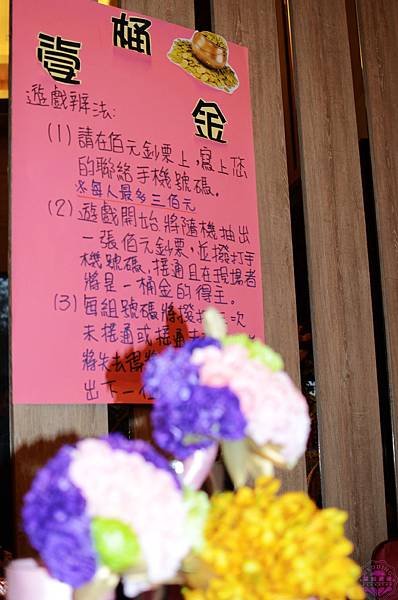 壹桶金
遊戲辦法:
(1) 請在佰元鈔票上,寫上您
的聯絡手機號碼。
※每人最多三佰元
(2) 遊戲開始將隨機抽出
一張佰元鈔票,並撥打手
機號碼,接通且在現場者
將是一桶金的得主。
(3) 每組號碼將撥打 次
未接通或接通
將失去得
出下一位